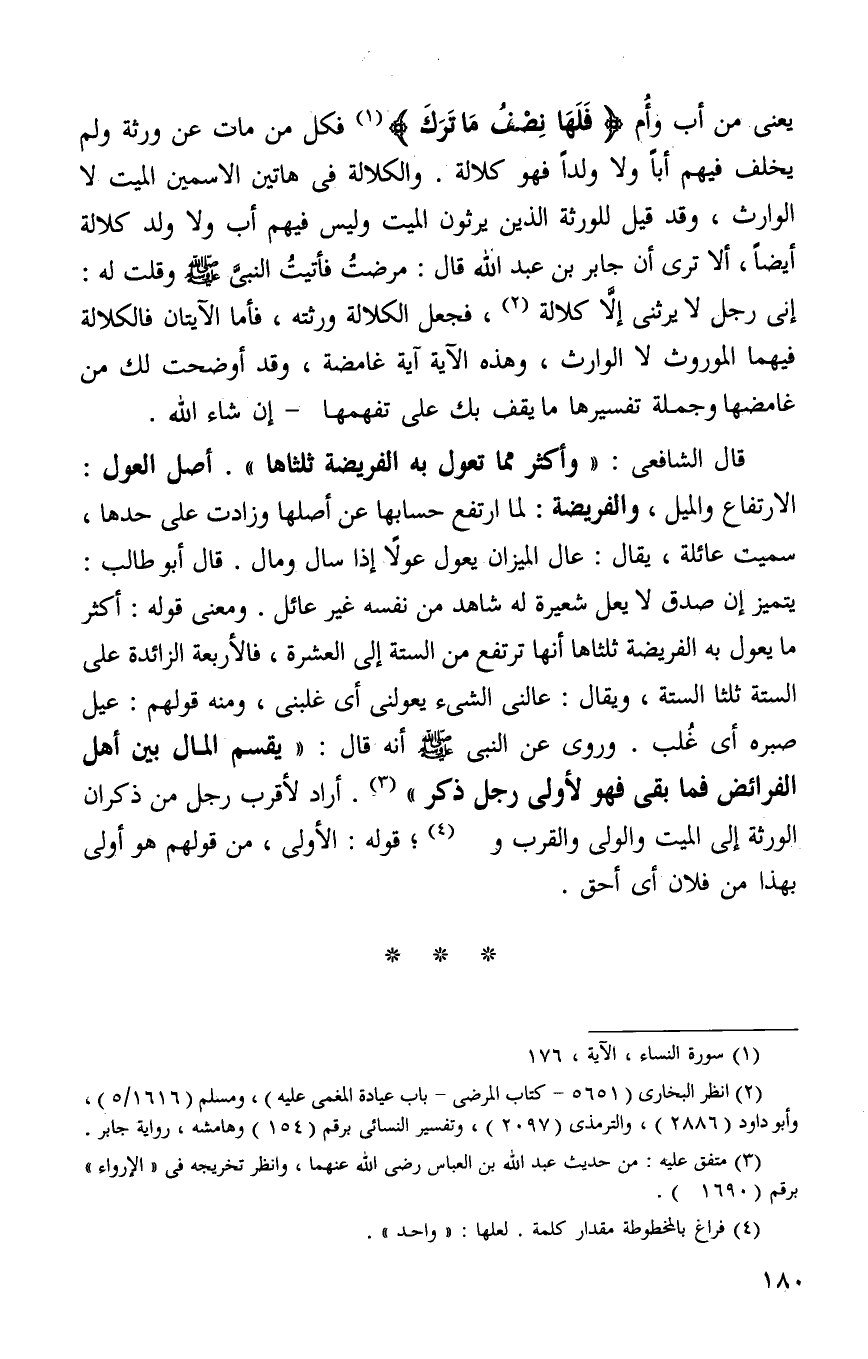 يعنى من أب وأُم ﴿ فَلَهَا نِصْفُ مَا تَرَكَ ﴾ (١) فكل من مات عن ورثة ولم
يخلف فيهم أباً ولا ولداً فهو كلالة . والكلالة فى هاتين الاسمين الميت لا
الوارث ، وقد قيل للورثة الذين يرثون الميت وليس فيهم أب ولا ولد كلالة
أيضاً ، ألا ترى أن جابر بن عبد الله قال : مرضتُ فأتيتُ النبىَّ ﷺ وقلت له :
إنى رجل لا يرثنى إلَّا كلالة (٢) ، فجعل الكلالة ورثته ، فأما الآيتان فالكلالة
فيهما الموروث لا الوارث ، وهذه الآية آية غامضة ، وقد أوضحت لك من
غامضها وجملة تفسيرها ما يقف بك على تفهمها – إن شاء الله .
قال الشافعى : « وأكثر مما تعول به الفريضة ثلثاها » . أصل العول :
الارتفاع والميل ، والفريضة : لما ارتفع حسابها عن أصلها وزادت على حدها ،
سميت عائلة ، يقال : عال الميزان يعول عولًا إذا سال ومال . قال أبو طالب :
يتميز إن صدق لا يعل شعيرة له شاهد من نفسه غير عائل . ومعنى قوله : أكثر
ما يعول به الفريضة ثلثاها أنها ترتفع من الستة إلى العشرة ، فالأربعة الزائدة على
الستة ثلثا الستة ، ويقال : عالنى الشىء يعولنى أى غلبنى ، ومنه قولهم : عيل
صبره أى غُلب . وروى عن النبى ﷺ أنه قال : « يقسم المال بين أهل
الفرائض فما بقى فهو لأولى رجل ذكر » (٣) . أراد لأقرب رجل من ذكران
الورثة إلى الميت والولى والقرب و (٤) ؛ قوله : الأولى ، من قولهم هو أولى
بهذا من فلان أى أحق .
* * *
(١) سورة النساء ، الآية ، ١٧٦
(٢) انظر البخارى ( ٥٦٥١ – كتاب المرضى – باب عيادة المغمى عليه ) ، ومسلم ( ٥/١٦١٦ ) ،
وأبو داود ( ٢٨٨٦ ) ، والترمذى ( ٢٠٩٧ ) ، وتفسير النسائى برقم ( ١٥٤ ) وهامشه ، رواية جابر .
(٣) متفق عليه : من حديث عبد الله بن العباس رضى الله عنهما ، وانظر تخريجه فى « الإرواء »
برقم ( ١٦٩٠ ) .
(٤) فراغ بالمخطوطة مقدار كلمة . لعلها : « واحد » .
١٨٠